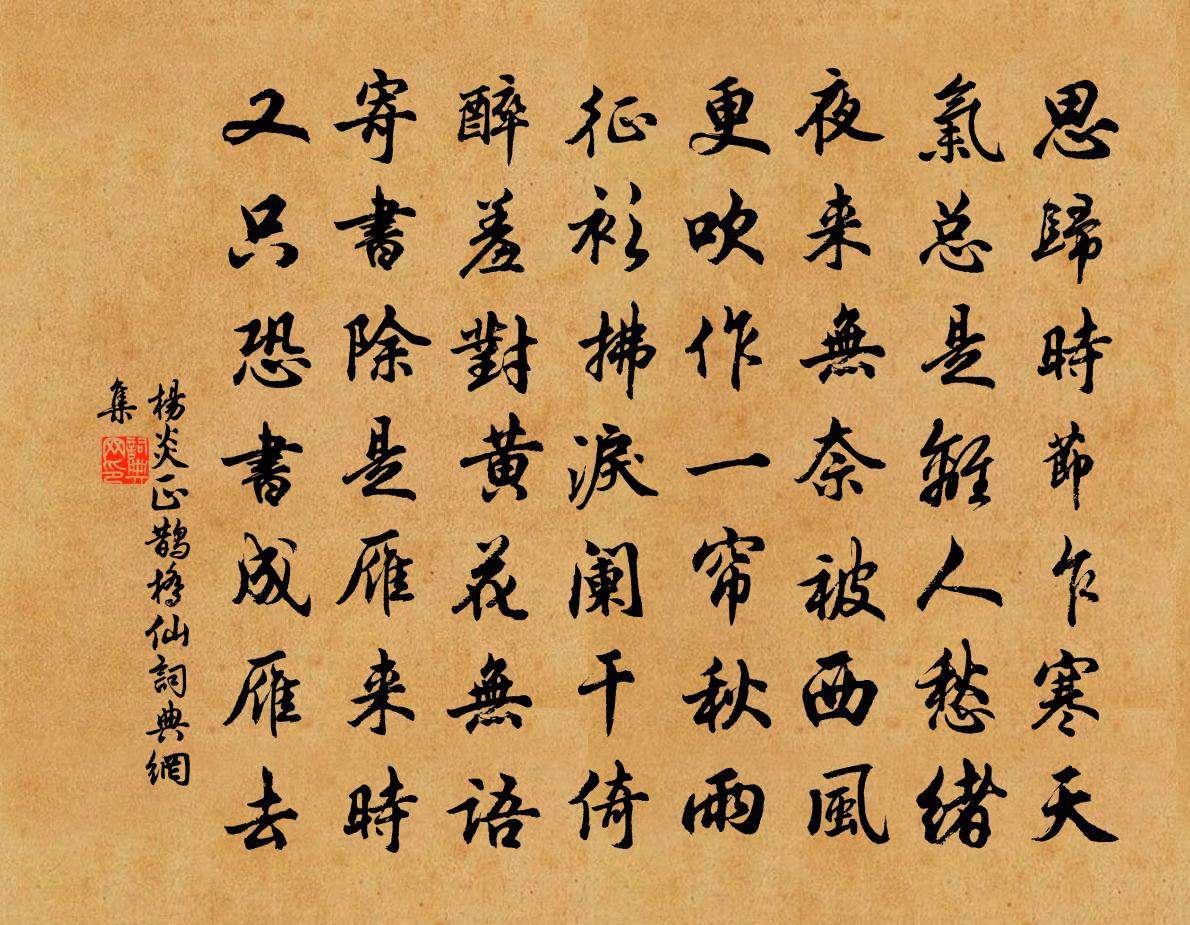 思歸時節乍寒天
氣总是離人愁緒
夜来無奈被西風
更吹作一帘秋雨
征衫拂淚阑干倚
醉羞對黄花無語
寄書除是雁来時
又只恐書成雁去
楊炎正鵲橋仙詞典網
集